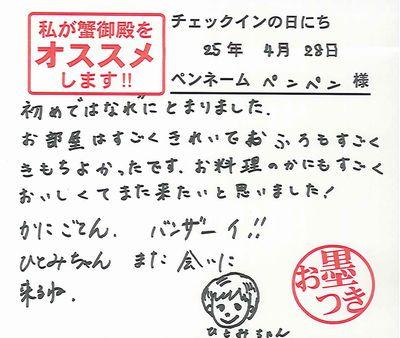 私が蟹御殿を
オススメ
します!!
チェックインの日にち
25年 4月 28日
ペンネーム ペンペン 様
初めてはなれにとまりました。
お部屋はすごくきれいでおふろもすごく
きもちよかったです。お料理のかにもすごく
おいしくてまた来たいと思いました!
かにごてん. バンザーイ!!
ひとみちゃん また 会いに
来るね.
ひとみちゃん
お墨つき